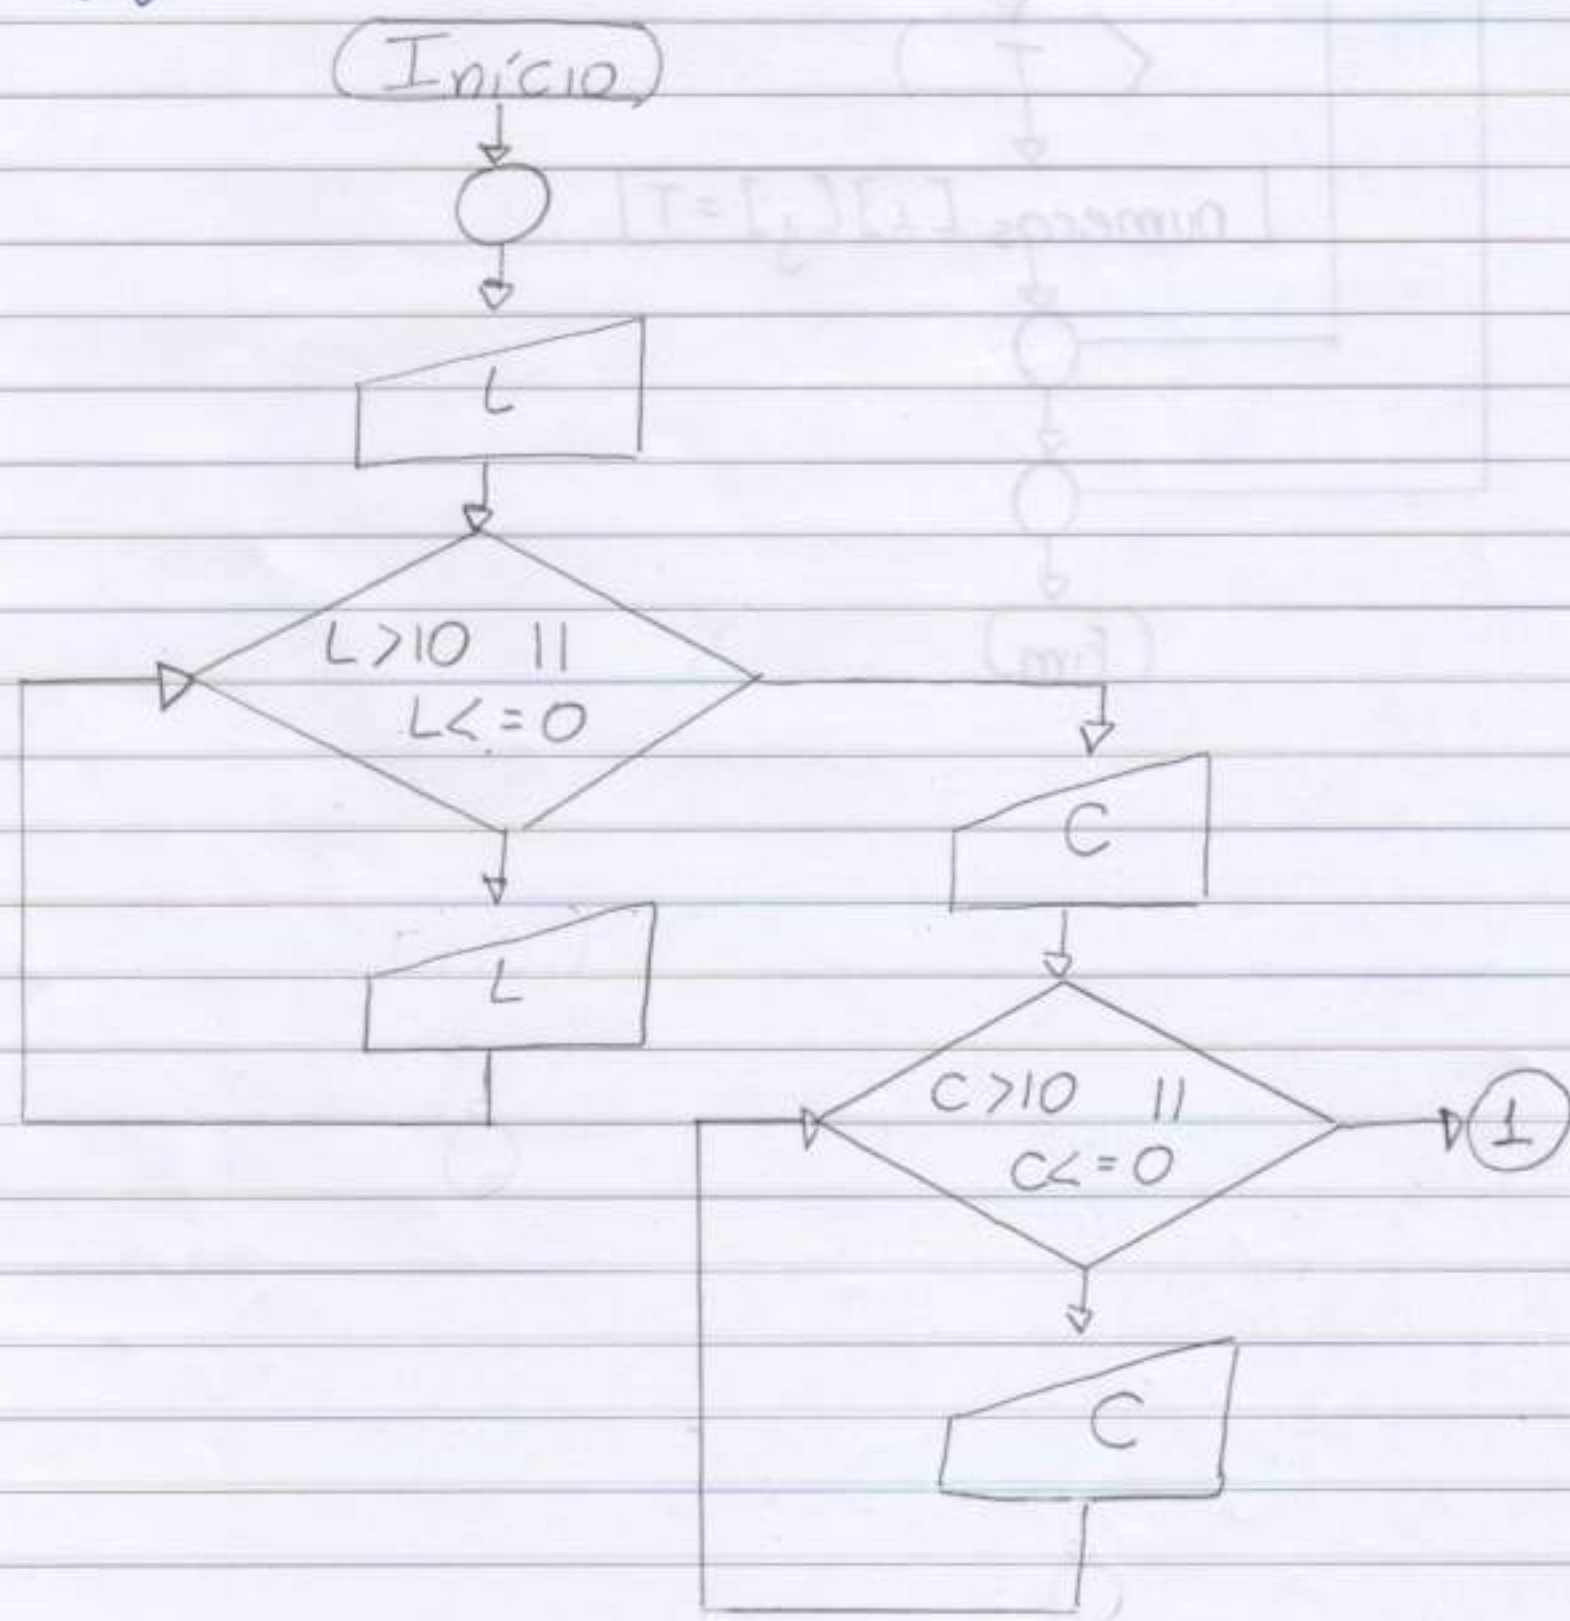 Início
L
L>10 ||
L<=0
C
L
C>10 ||
C<=0
1
C